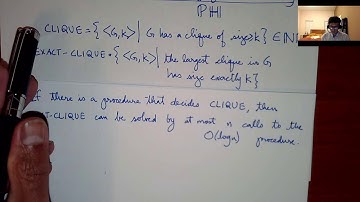 PH
CLIQUE = { <G,k> | G has a clique of size ≥ k } ∈ N
EXACT-CLIQUE = { <G,k> | the largest clique in G
has size exactly k }
If there is a procedure that decides CLIQUE, then
-CLIQUE can be solved by at most n calls to the
O(log n) procedure.